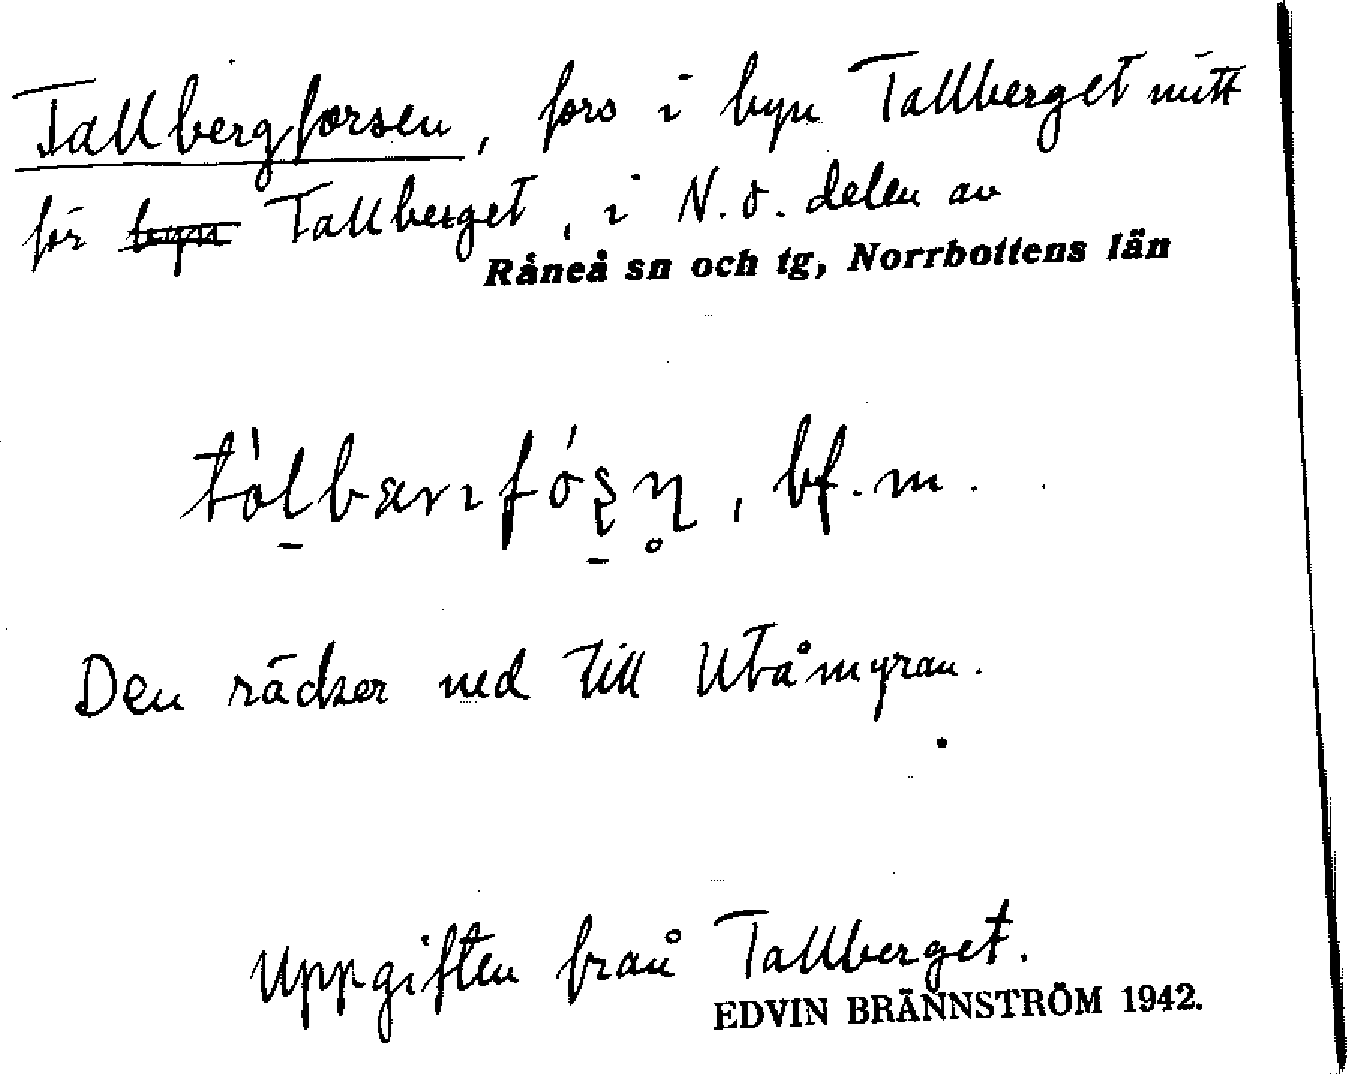 Tallbergforsen, fors i byn Tallberget mitt
för byn Tallberget, i N.ö. delen av
Råneå sn och tg, Norrbottens län
bf. m.
Den räcker ned till Utåmyran.
Uppgiften från Tallberget.
EDVIN BRÄNNSTRÖM 1942.